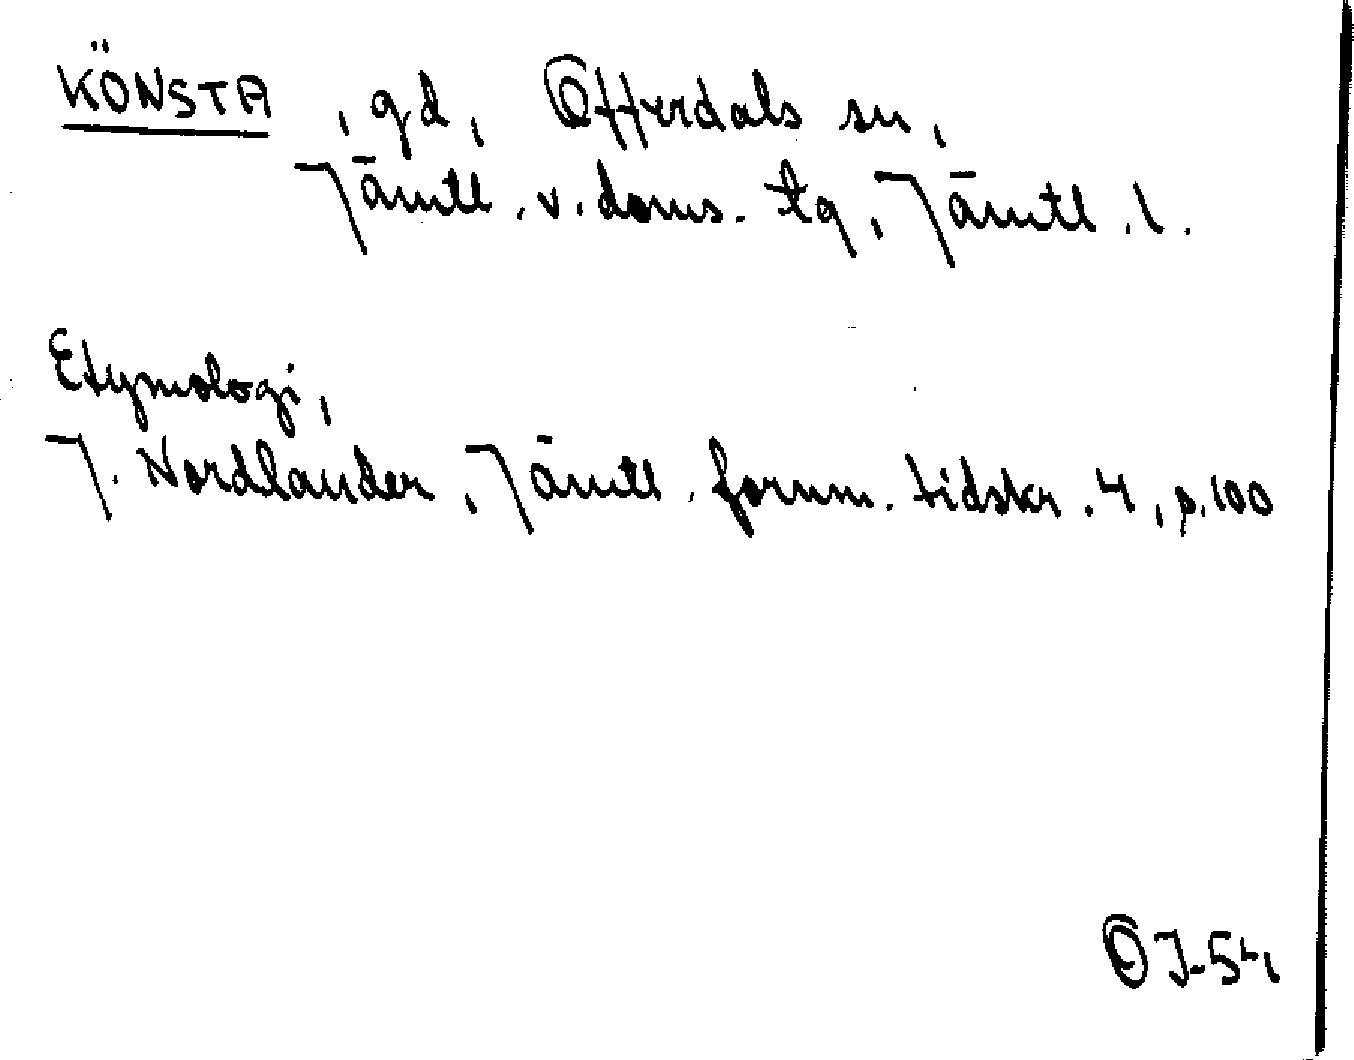 KÖNSTA, gd, Offerdals sn,
Jämtl. v. doms. tg, Jämtl. l.
Etymologi,
J. Nordlander, Jämtl. fornm. tidskr. 4, p. 100
OJ-54